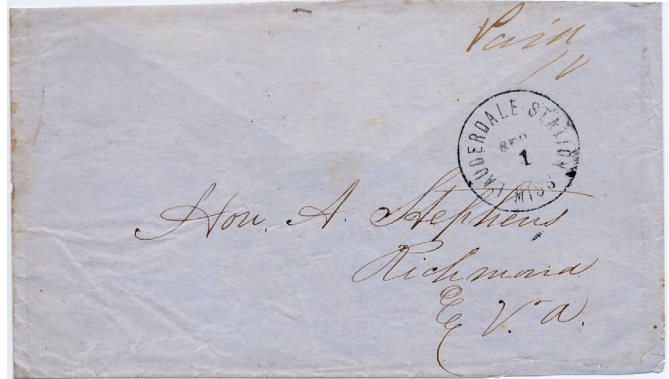 Paid
10
LAUDERDALE STATION MISS
SEP
1
Hon. A. Stephens
Richmond
E. Va.